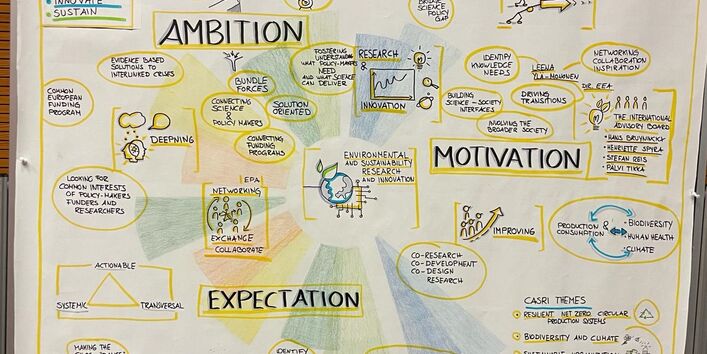 INNOVATE
SUSTAIN
AMBITION
SCIENCE
POLICY
GAP
EVIDENCE BASED
SOLUTIONS TO
INTERLINKED CRISES
BUNDLE
FORCES
FOSTERING
UNDERSTANDING
WHAT POLICY-MAKERS
NEED
AND WHAT SCIENCE
CAN DELIVER
RESEARCH
&
INNOVATION
IDENTIFY
KNOWLEDGE
NEEDS
LEENA
YLÄ-MONONEN
DIR. EEA
NETWORKING
COLLABORATION
INSPIRATION
COMMON
EUROPEAN
FUNDING
PROGRAM
CONNECTING
SCIENCE &
POLICY MAKERS
SOLUTION
ORIENTED
BUILDING
SCIENCE - SOCIETY
INTERFACES
DRIVING
TRANSITIONS
INVOLVING THE
BROADER SOCIETY
THE INTERNATIONAL
ADVISORY BOARD
• HANS BRUYNINCKX
• HENRIETTE SPYRA
• STEFAN REIS
• PÄIVI TIKKA
DEEPNING
CONNECTING
FUNDING
PROGRAMS
MOTIVATION
ENVIRONMENTAL
AND SUSTAINABILITY
RESEARCH
AND INNOVATION
LOOKING FOR
COMMON INTERESTS
OF POLICY-MAKERS
FUNDERS AND
RESEARCHERS
EPA
NETWORKING
EXCHANGE
COLLABORATE
IMPROVING
PRODUCTION &
CONSUMATION
• BIODIVERSITY
• HUMAN HEALTH
• CLIMATE
CO-RESEARCH
CO-DEVELOPMENT
CO-DESIGN
RESEARCH
ACTIONABLE
SYSTEMIC
TRANSVERSAL
EXPECTATION
CASRI THEMES
RESILIENT NET ZERO CIRCULAR
PRODUCTION SYSTEMS
BIODIVERSITY AND CLIMATE
MAKING THE
IDENTIFY